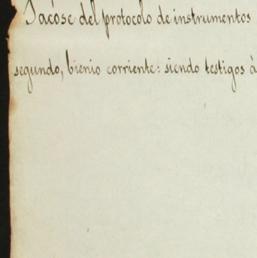 Sacóse del protocolo de instrumentos
segundo, bienio corriente: siendo testigos á